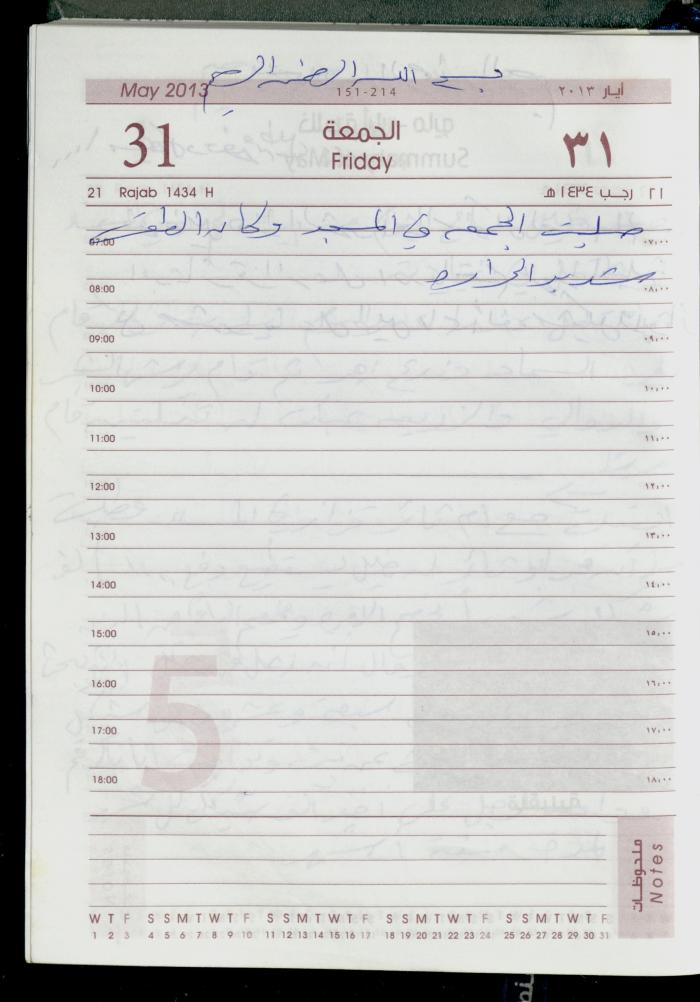 بسم الله الرحمن الرحيم
May 2013 151-214 أيار ٢٠١٣
31 الجمعة ٣١
Friday
21 Rajab 1434 H ٢١ رجب ١٤٣٤ هـ
صليت الجمعه في المسجد وكان الطقس
07:00 ٠٧:٠٠
شديد الحراره
08:00 ٠٨:٠٠
09:00 ٠٩:٠٠
10:00 ١٠:٠٠
11:00 ١١:٠٠
12:00 ١٢:٠٠
13:00 ١٣:٠٠
14:00 ١٤:٠٠
15:00 ١٥:٠٠
16:00 ١٦:٠٠
17:00 ١٧:٠٠
18:00 ١٨:٠٠
5
ملحوظات
Notes
W T F S S M T W T F S S M T W T F S S M T W T F S S M T W T F
1 2 3 4 5 6 7 8 9 10 11 12 13 14 15 16 17 18 19 20 21 22 23 24 25 26 27 28 29 30 31